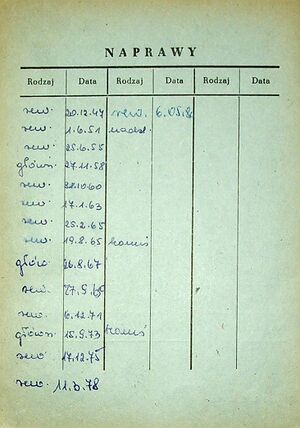 NAPRAWY
Rodzaj Data Rodzaj Data Rodzaj Data
rew. 20.12.47 rew. 6.05.8
rew. 1.6.51 nadzl.
rew. 25.6.55
główn. 27.11.58
rew. 22.10.60
rew. 17.1.63
rew. 25.2.65
rew. 19.8.65
główn. 26.8.67
rew. 27.9.69
rew. 6.12.71
główn. 15.9.73
rew. 17.12.75
rew. 11.3.78